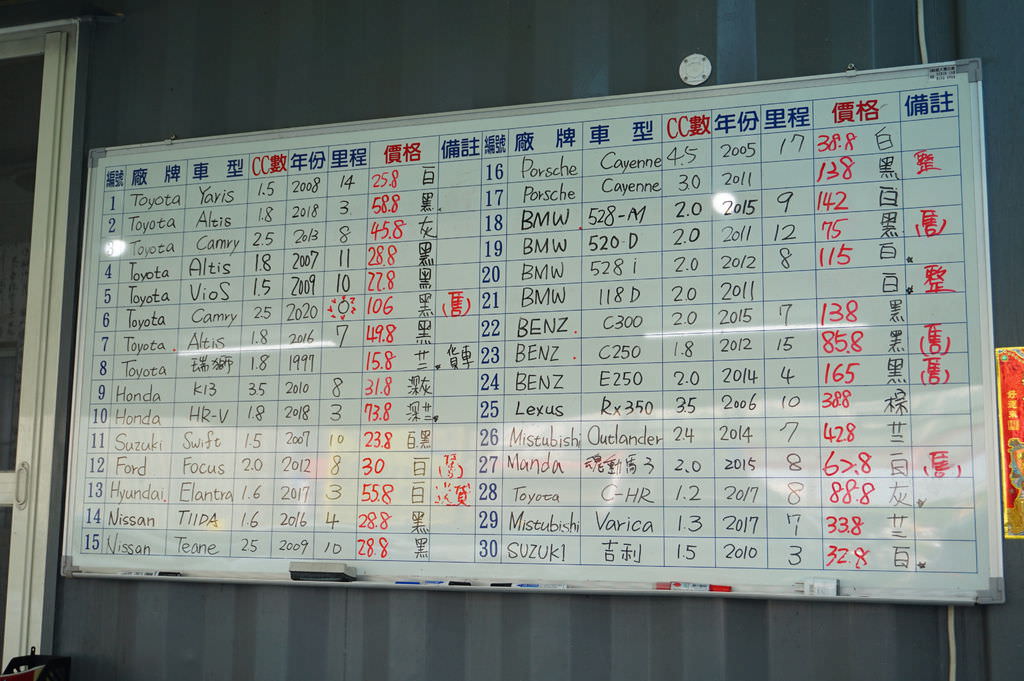 編號 廠牌 車型 CC數 年份 里程 價格 備註
1 Toyota Yaris 1.5 2008 14 25.8 白
2 Toyota Altis 1.8 2018 3 58.8 黑
3 Toyota Camry 2.5 2013 8 45.8 灰
4 Toyota Altis 1.8 2007 11 28.8 黑
5 Toyota Vios 1.5 2009 10 22.8 黑
6 Toyota Camry 2.5 2020 106 黑 (售)
7 Toyota Altis 1.8 2016 7 49.8 黑
8 Toyota 瑞獅 1.8 1997 15.8 貨車
9 Honda K13 3.5 2010 8 31.8 深灰
10 Honda HR-V 1.8 2018 3 73.8 深
11 Suzuki Swift 1.5 2007 10 23.8 白黑
12 Ford Focus 2.0 2012 8 30 白
13 Hyundai Elantra 1.6 2017 3 55.8 白
14 Nissan TIIDA 1.6 2016 4 28.8 黑
15 Nissan Teane 2.5 2009 10 28.8 黑
編號 廠牌 車型 CC數 年份 里程 價格 備註
16 Porsche Cayenne 4.5 2005 17 38.8 白
17 Porsche Cayenne 3.0 2011 138 黑 整
18 BMW 528-M 2.0 2015 9 142 白
19 BMW 520D 2.0 2011 12 75 黑 (售)
20 BMW 528i 2.0 2012 8 115 白
21 BMW 118D 2.0 2011 白 整
22 BENZ C300 2.0 2015 7 138 黑
23 BENZ C250 1.8 2012 15 85.8 黑 (售)
24 BENZ E250 2.0 2014 4 165 黑 (售)
25 Lexus Rx350 3.5 2006 10 38.8 棕
26 Mistubishi Outlander 2.4 2014 7 42.8
27 Manda 魂動馬3 2.0 2015 8 白 (售)
28 Toyota C-HR 1.2 2017 8 88.8 灰
29 Mistubishi Varica 1.3 2017 7 33.8
30 SUZUKI 吉利 1.5 2010 3 32.8 白